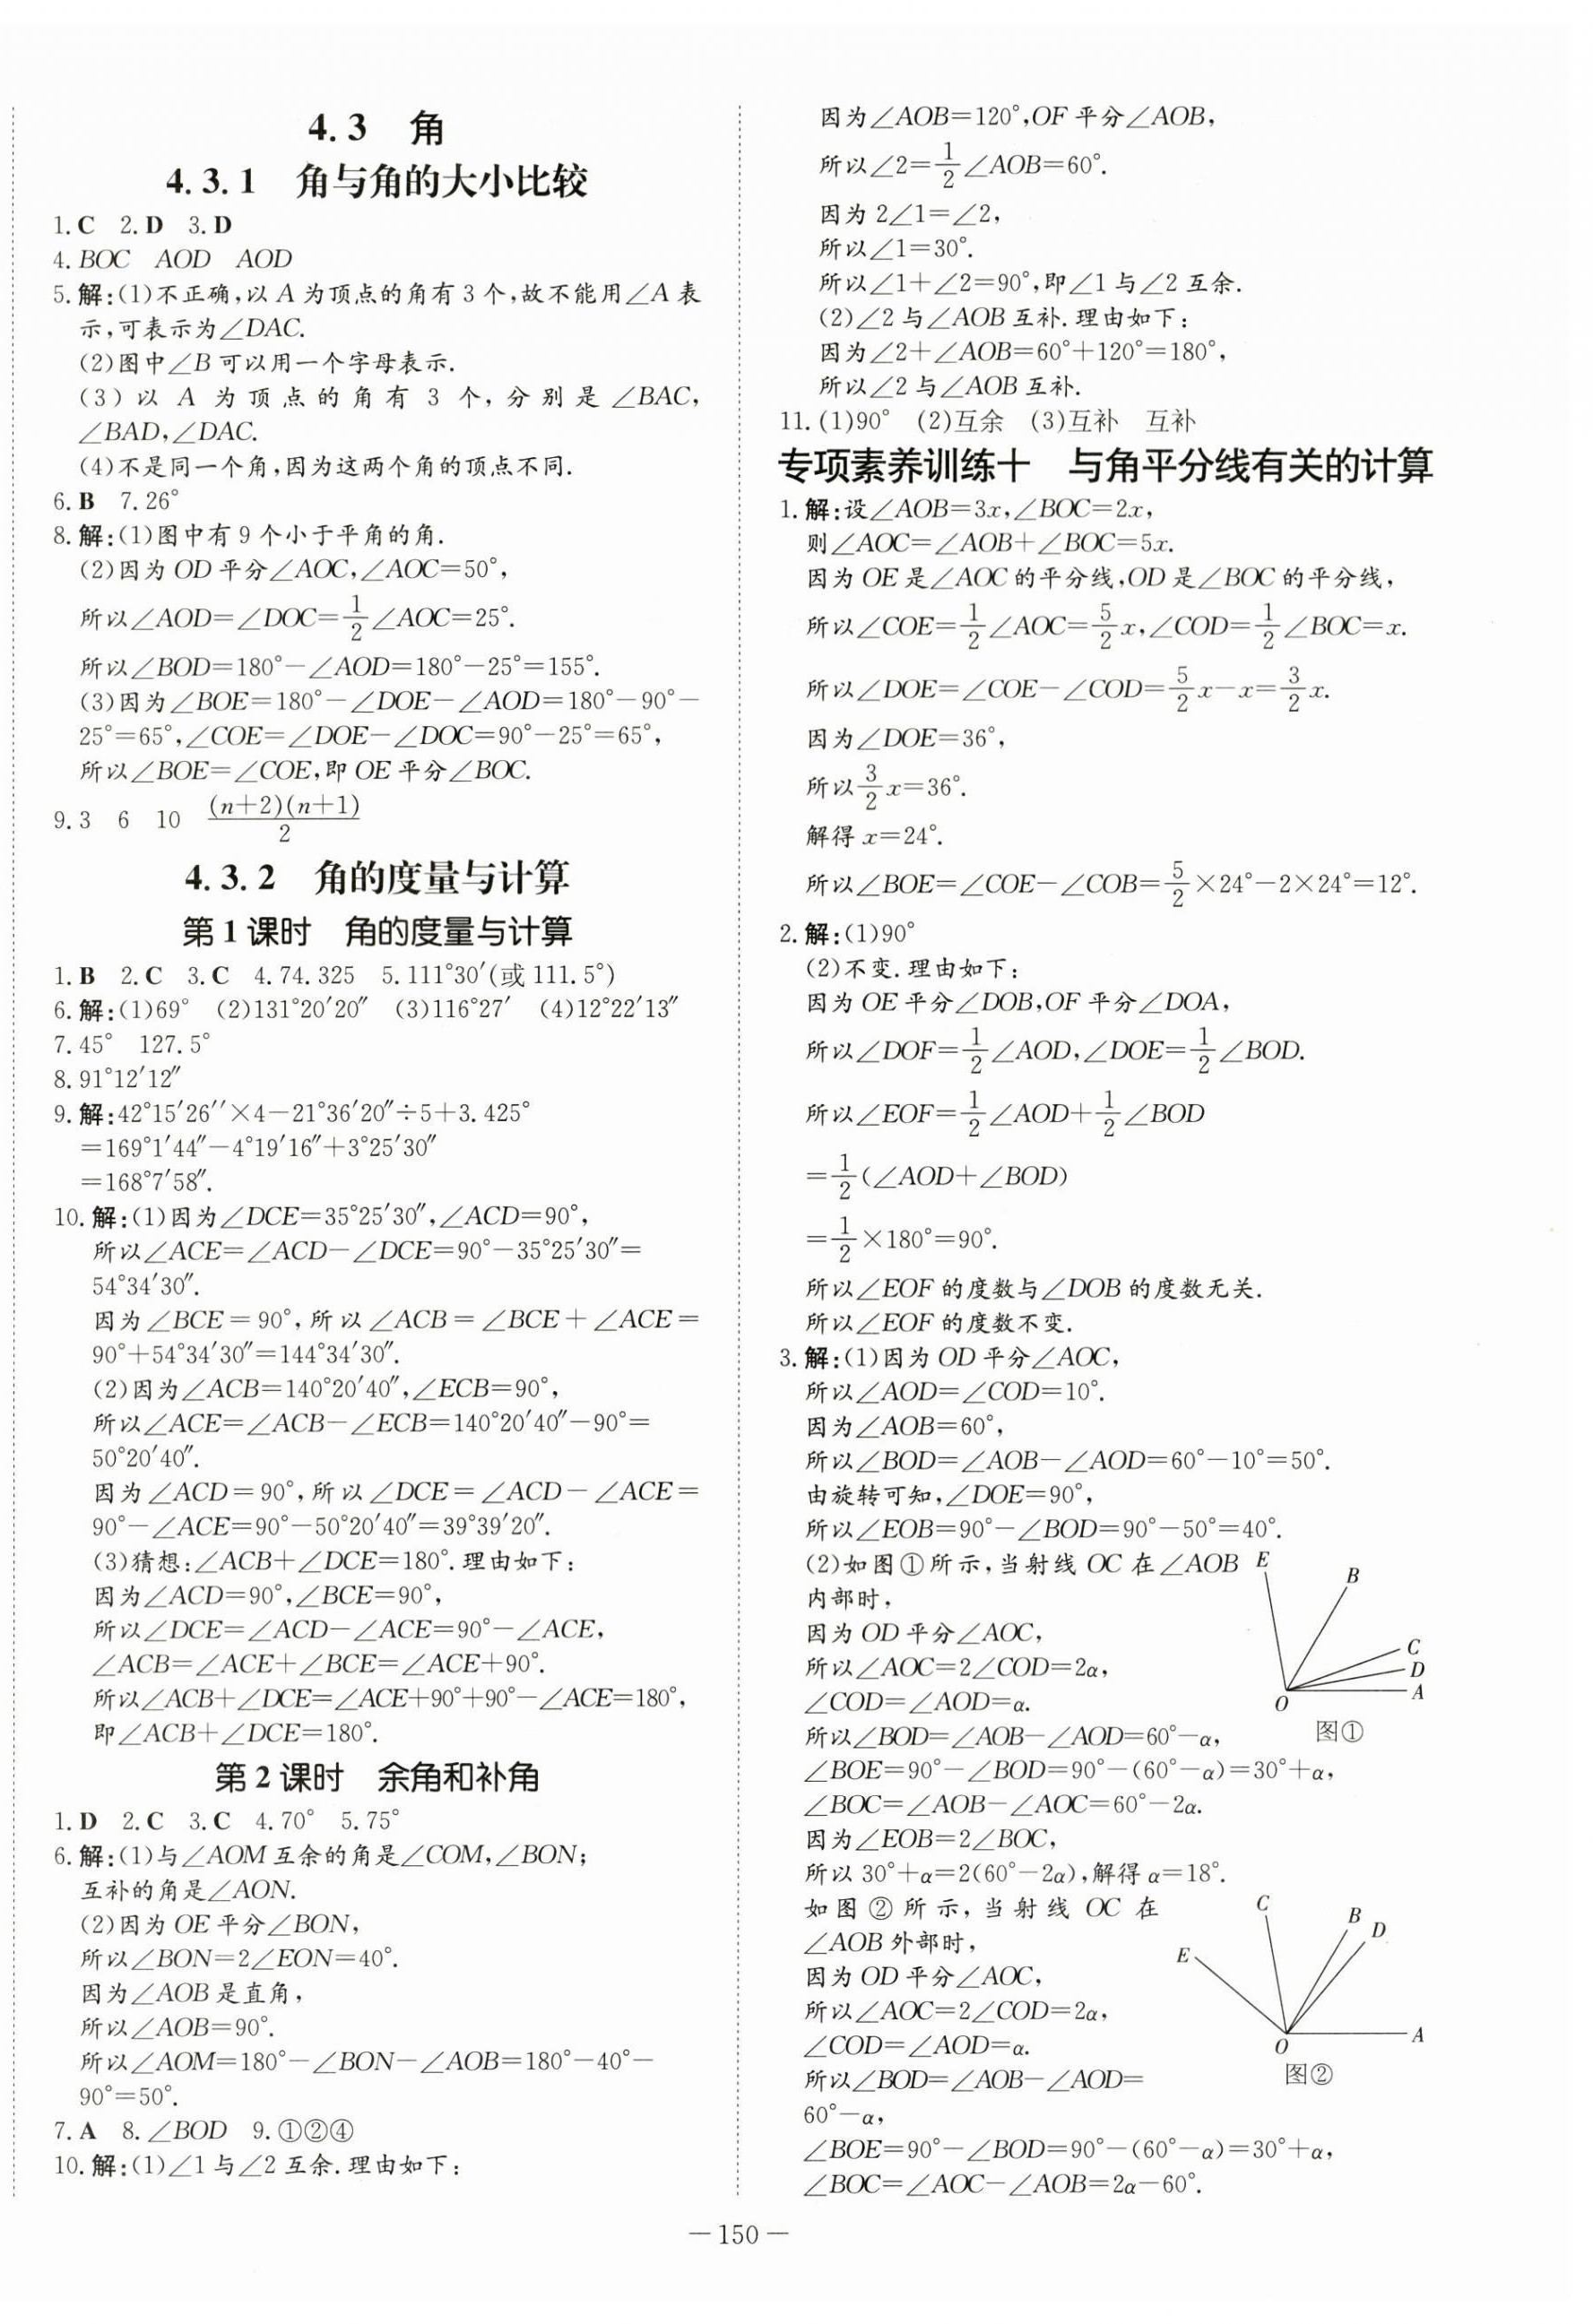 4.3 角
4.3.1 角与角的大小比较
1.C 2.D 3.D
4.BOC AOD AOD
5.解:(1)不正确,以A为顶点的角有3个,故不能用∠A表
示,可表示为∠DAC.
(2)图中∠B可以用一个字母表示.
(3)以A为顶点的角有3个,分别是∠BAC,
∠BAD,∠DAC.
(4)不是同一个角,因为这两个角的顶点不同.
6.B 7.26°
8.解:(1)图中有9个小于平角的角.
(2)因为OD平分∠AOC,∠AOC=50°,
所以∠AOD=∠DOC=1/2∠AOC=25°.
所以∠BOD=180°-∠AOD=180°-25°=155°.
(3)因为∠BOE=180°-∠DOE-∠AOD=180°-90°-
25°=65°,∠COE=∠DOE-∠DOC=90°-25°=65°,
所以∠BOE=∠COE,即OE平分∠BOC.
9.3 6 10 (n+2)(n+1)/2
4.3.2 角的度量与计算
第1课时 角的度量与计算
1.B 2.C 3.C 4.74.325 5.111°30′(或111.5°)
6.解:(1)69° (2)131°20′20″ (3)116°27′ (4)12°22′13″
7.45° 127.5°
8.91°12′12″
9.解:42°15′26′′×4-21°36′20″÷5+3.425°
=169°1′44″-4°19′16″+3°25′30″
=168°7′58″.
10.解:(1)因为∠DCE=35°25′30″,∠ACD=90°,
所以∠ACE=∠ACD-∠DCE=90°-35°25′30″=
54°34′30″.
因为∠BCE=90°,所以∠ACB=∠BCE+∠ACE=
90°+54°34′30″=144°34′30″.
(2)因为∠ACB=140°20′40″,∠ECB=90°,
所以∠ACE=∠ACB-∠ECB=140°20′40″-90°=
50°20′40″.
因为∠ACD=90°,所以∠DCE=∠ACD-∠ACE=
90°-∠ACE=90°-50°20′40″=39°39′20″.
(3)猜想:∠ACB+∠DCE=180°.理由如下:
因为∠ACD=90°,∠BCE=90°,
所以∠DCE=∠ACD-∠ACE=90°-∠ACE,
∠ACB=∠ACE+∠BCE=∠ACE+90°.
所以∠ACB+∠DCE=∠ACE+90°+90°-∠ACE=180°,
即∠ACB+∠DCE=180°.
第2课时 余角和补角
1.D 2.C 3.C 4.70° 5.75°
6.解:(1)与∠AOM互余的角是∠COM,∠BON;
互补的角是∠AON.
(2)因为OE平分∠BON,
所以∠BON=2∠EON=40°.
因为∠AOB是直角,
所以∠AOB=90°.
所以∠AOM=180°-∠BON-∠AOB=180°-40°-
90°=50°.
7.A 8.∠BOD 9.①②④
10.解:(1)∠1与∠2互余.理由如下:
因为∠AOB=120°,OF平分∠AOB,
所以∠2=1/2∠AOB=60°.
因为2∠1=∠2,
所以∠1=30°.
所以∠1+∠2=90°,即∠1与∠2互余.
(2)∠2与∠AOB互补.理由如下:
因为∠2+∠AOB=60°+120°=180°,
所以∠2与∠AOB互补.
11.(1)90° (2)互余 (3)互补 互补
专项素养训练十 与角平分线有关的计算
1.解:设∠AOB=3x,∠BOC=2x,
则∠AOC=∠AOB+∠BOC=5x.
因为OE是∠AOC的平分线,OD是∠BOC的平分线,
所以∠COE=1/2∠AOC=5/2x,∠COD=1/2∠BOC=x.
所以∠DOE=∠COE-∠COD=5/2x-x=3/2x.
因为∠DOE=36°,
所以3/2x=36°.
解得x=24°.
所以∠BOE=∠COE-∠COB=5/2×24°-2×24°=12°.
2.解:(1)90°
(2)不变.理由如下:
因为OE平分∠DOB,OF平分∠DOA,
所以∠DOF=1/2∠AOD,∠DOE=1/2∠BOD.
所以∠EOF=1/2∠AOD+1/2∠BOD
=1/2(∠AOD+∠BOD)
=1/2×180°=90°.
所以∠EOF的度数与∠DOB的度数无关.
所以∠EOF的度数不变.
3.解:(1)因为OD平分∠AOC,
所以∠AOD=∠COD=10°.
因为∠AOB=60°,
所以∠BOD=∠AOB-∠AOD=60°-10°=50°.
由旋转可知,∠DOE=90°,
所以∠EOB=90°-∠BOD=90°-50°=40°.
(2)如图①所示,当射线OC在∠AOB
内部时,
因为OD平分∠AOC,
所以∠AOC=2∠COD=2α,
∠COD=∠AOD=α.
所以∠BOD=∠AOB-∠AOD=60°-α,
∠BOE=90°-∠BOD=90°-(60°-α)=30°+α,
∠BOC=∠AOB-∠AOC=60°-2α.
因为∠EOB=2∠BOC,
所以30°+α=2(60°-2α),解得α=18°.
E
B
C
D
A
O
图①
如图②所示,当射线OC在
∠AOB外部时,
因为OD平分∠AOC,
所以∠AOC=2∠COD=2α,
∠COD=∠AOD=α.
所以∠BOD=∠AOB-∠AOD=
60°-α,
∠BOE=90°-∠BOD=90°-(60°-α)=30°+α,
∠BOC=∠AOC-∠AOB=2α-60°.
C
B
D
E
A
O
图②
—150—